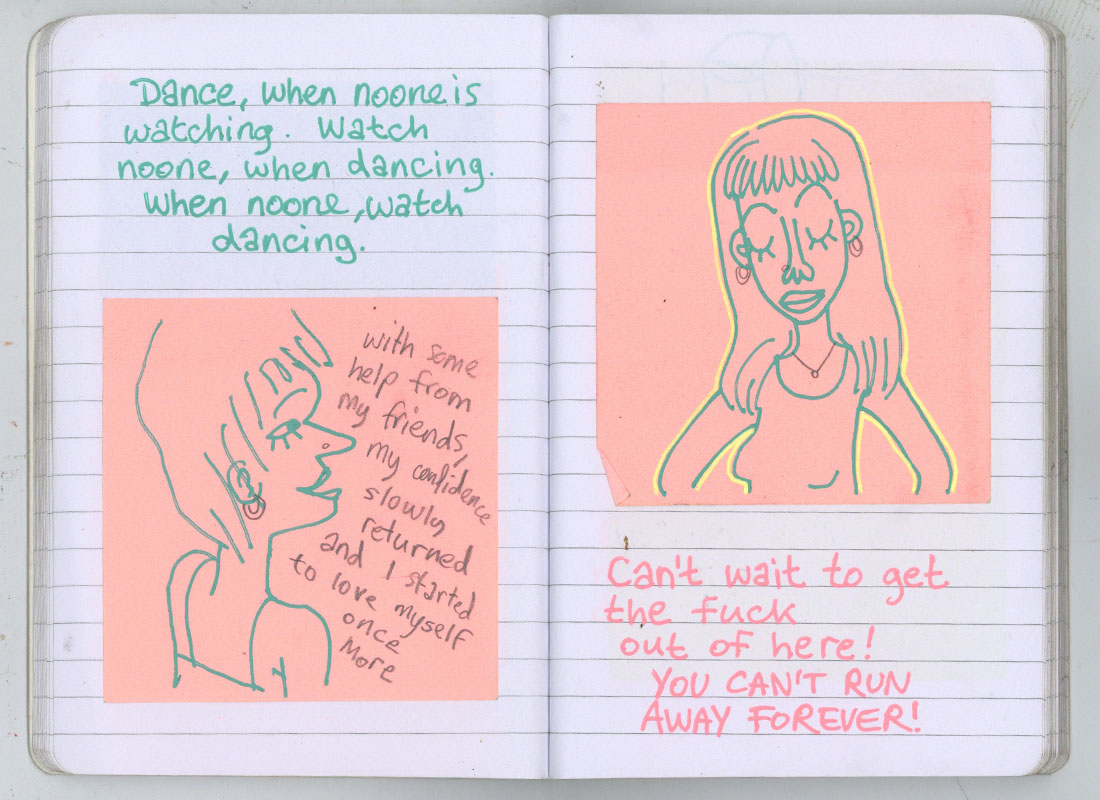 Dance, when noone is
watching. Watch
noone, when dancing.
When noone, watch
dancing.
with some
help from
my friends,
my confidence
slowly
returned
and I started
to love myself
once
More
Can't wait to get
the fuck
out of here!
YOU CAN'T RUN
AWAY FOREVER!